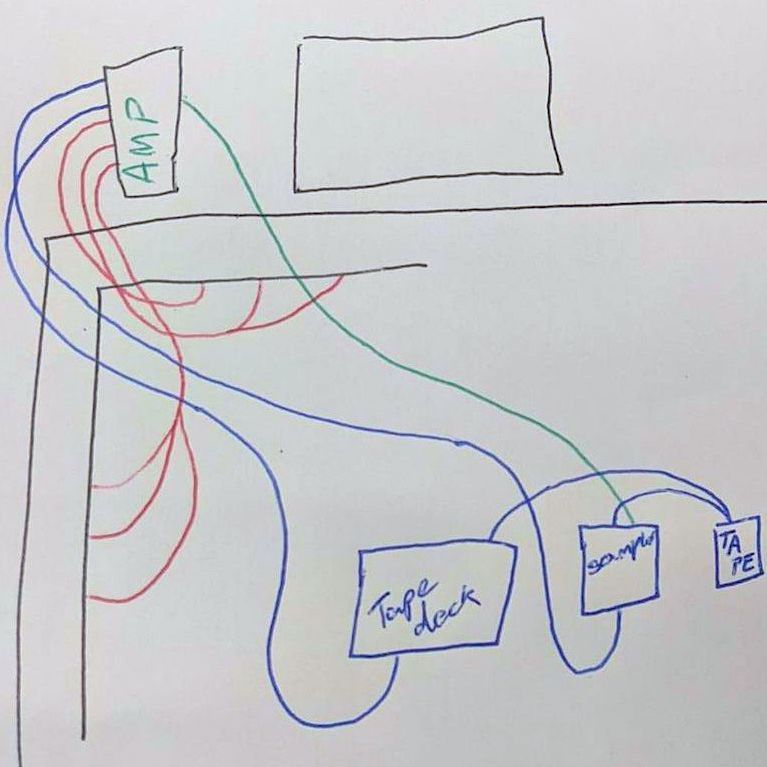 AMP
Tape
deck
sampler
TA
PE